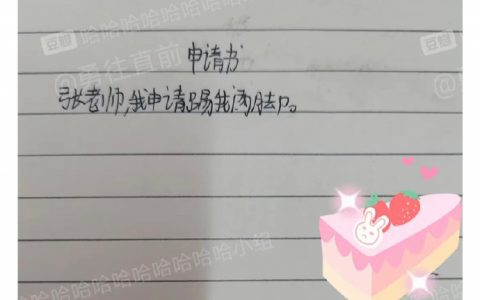 豆瓣 哈哈哈哈哈哈哈小组
@勇往直前
申请书
张老师,我申请踢我两脚。
哈哈哈哈哈哈哈小组